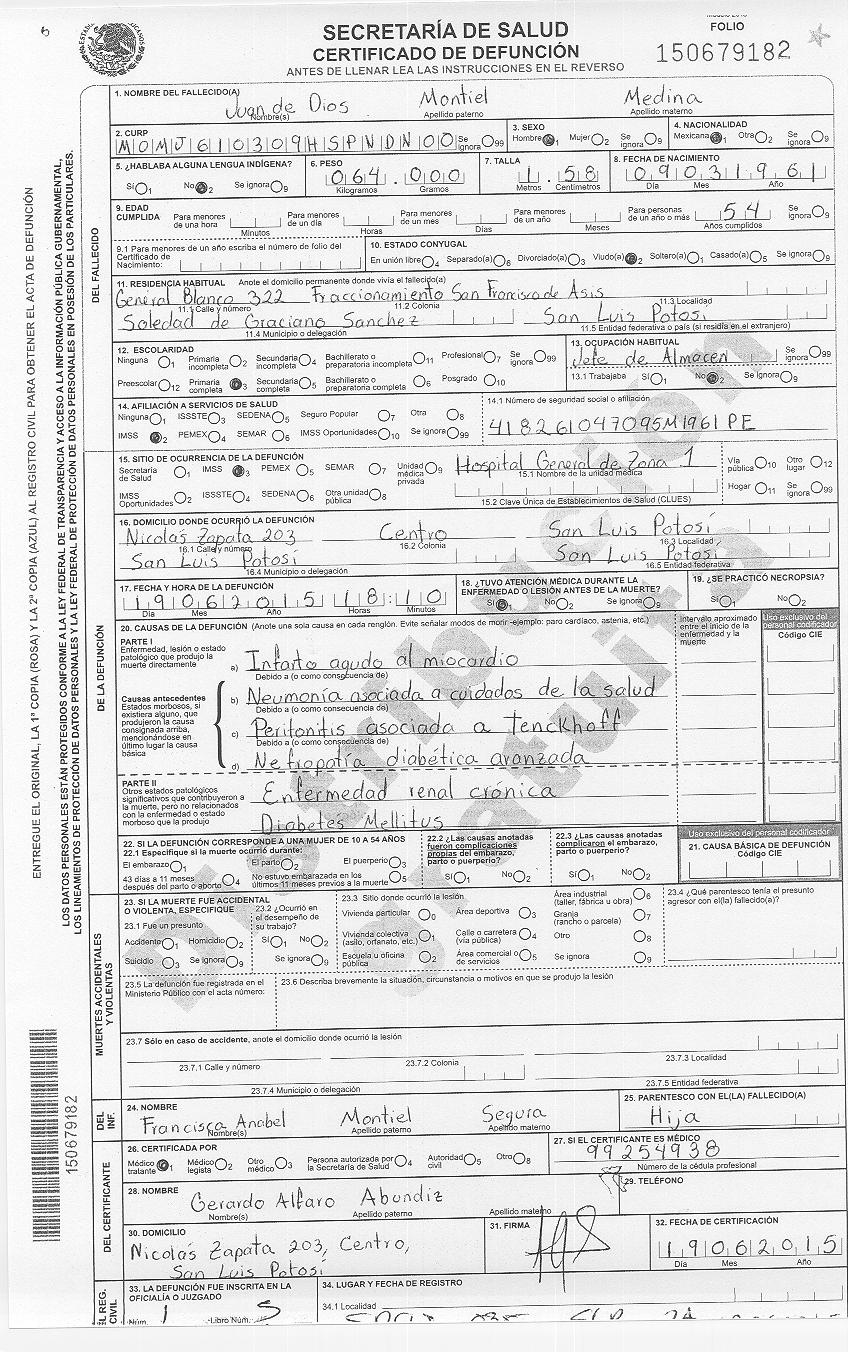 SECRETARÍA DE SALUD
CERTIFICADO DE DEFUNCIÓN
ANTES DE LLENAR LEA LAS INSTRUCCIONES EN EL REVERSO
FOLIO
150679182
ENTREGUE EL ORIGINAL, LA 1ª COPIA (ROSA) Y LA 2ª COPIA (AZUL) AL REGISTRO CIVIL PARA OBTENER EL ACTA DE DEFUNCIÓN
LOS DATOS PERSONALES ESTÁN PROTEGIDOS CONFORME A LA LEY FEDERAL DE TRANSPARENCIA Y ACCESO A LA INFORMACIÓN PÚBLICA GUBERNAMENTAL,
LOS LINEAMIENTOS DE PROTECCIÓN DE DATOS PERSONALES Y LA LEY FEDERAL DE PROTECCIÓN DE DATOS PERSONALES EN POSESIÓN DE LOS PARTICULARES.
150679182
DEL FALLECIDO
1. NOMBRE DEL FALLECIDO(A)
Juan de Dios Montiel Medina
Nombre(s) Apellido paterno Apellido materno
2. CURP MOMJ610309HSPNDN00 Se ignora 99
3. SEXO Hombre 1 Mujer 2 Se ignora 9
4. NACIONALIDAD Mexicana 1 Otra 2 Se ignora 9
5. ¿HABLABA ALGUNA LENGUA INDÍGENA?
Sí 1 No 2 Se ignora 9
6. PESO 064.000
Kilogramos Gramos
7. TALLA 1.58
Metros Centímetros
8. FECHA DE NACIMIENTO
09031961
Día Mes Año
9. EDAD CUMPLIDA Para menores de una hora Minutos Para menores de un día Horas Para menores de un mes Días Para menores de un año Meses Para personas de un año o más 54 Años cumplidos Se ignora 9
9.1 Para menores de un año escriba el número de folio del Certificado de Nacimiento:
10. ESTADO CONYUGAL
En unión libre 4 Separado(a) 6 Divorciado(a) 3 Viudo(a) 2 Soltero(a) 1 Casado(a) 5 Se ignora 9
11. RESIDENCIA HABITUAL Anote el domicilio permanente donde vivía el fallecido(a)
General Blanco 322 Fraccionamiento San Francisco de Asis
11.1 Calle y número 11.2 Colonia 11.3 Localidad
Soledad de Graciano Sanchez San Luis Potosí
11.4 Municipio o delegación 11.5 Entidad federativa o país (si residía en el extranjero)
12. ESCOLARIDAD
Ninguna 1 Primaria incompleta 2 Secundaria incompleta 4 Bachillerato o preparatoria incompleta 11 Profesional 7 Se ignora 99
Preescolar 12 Primaria completa 3 Secundaria completa 5 Bachillerato o preparatoria completa 6 Posgrado 10
13. OCUPACIÓN HABITUAL
Jefe de Almacen Se ignora 99
13.1 Trabajaba Sí 1 No 2 Se ignora 9
14. AFILIACIÓN A SERVICIOS DE SALUD
Ninguna 1 ISSSTE 3 SEDENA 5 Seguro Popular 7 Otra 8
IMSS 2 PEMEX 4 SEMAR 6 IMSS Oportunidades 10 Se ignora 99
14.1 Número de seguridad social o afiliación
418261047095M1961PE
DE LA DEFUNCIÓN
15. SITIO DE OCURRENCIA DE LA DEFUNCIÓN
Secretaría de Salud 1 IMSS 3 PEMEX 5 SEMAR 7 Unidad médica privada 9
IMSS Oportunidades 2 ISSSTE 4 SEDENA 6 Otra unidad pública 8
Hospital General de Zona 1
15.1 Nombre de la unidad médica
15.2 Clave Única de Establecimientos de Salud (CLUES)
Vía pública 10 Otro lugar 12
Hogar 11 Se ignora 99
16. DOMICILIO DONDE OCURRIÓ LA DEFUNCIÓN
Nicolás Zapata 203 Centro San Luis Potosí
16.1 Calle y número 16.2 Colonia 16.3 Localidad
San Luis Potosí San Luis Potosí
16.4 Municipio o delegación 16.5 Entidad federativa
17. FECHA Y HORA DE LA DEFUNCIÓN
19062015 18:10
Día Mes Año Horas Minutos
18. ¿TUVO ATENCIÓN MÉDICA DURANTE LA ENFERMEDAD O LESIÓN ANTES DE LA MUERTE?
Sí 1 No 2 Se ignora 9
19. ¿SE PRACTICÓ NECROPSIA?
Sí 1 No 2
20. CAUSAS DE LA DEFUNCIÓN (Anote una sola causa en cada renglón. Evite señalar modos de morir-ejemplo: paro cardíaco, astenia, etc.)
Intervalo aproximado entre el inicio de la enfermedad y la muerte
Uso exclusivo del personal codificador
Código CIE
PARTE I
Enfermedad, lesión o estado patológico que produjo la muerte directamente
a) Infarto agudo al miocardio
Debido a (o como consecuencia de)
Causas antecedentes
Estados morbosos, si existiera alguno, que produjeron la causa consignada arriba, mencionándose en último lugar la causa básica
b) Neumonía asociada a cuidados de la salud
Debido a (o como consecuencia de)
c) Peritonitis asociada a tenckhoff
Debido a (o como consecuencia de)
d) Nefropatía diabética avanzada
PARTE II
Otros estados patológicos significativos que contribuyeron a la muerte, pero no relacionados con la enfermedad o estado morboso que la produjo
Enfermedad renal crónica
Diabetes Mellitus
22. SI LA DEFUNCIÓN CORRESPONDE A UNA MUJER DE 10 A 54 AÑOS
22.1 Especifique si la muerte ocurrió durante:
El embarazo 1 El parto 2 El puerperio 3
43 días a 11 meses después del parto o aborto 4 No estuvo embarazada en los últimos 11 meses previos a la muerte 5
22.2 ¿Las causas anotadas fueron complicaciones propias del embarazo, parto o puerperio?
Sí 1 No 2
22.3 ¿Las causas anotadas complicaron el embarazo, parto o puerperio?
Sí 1 No 2
Uso exclusivo del personal codificador
21. CAUSA BÁSICA DE DEFUNCIÓN
Código CIE
MUERTES ACCIDENTALES Y VIOLENTAS
23. SI LA MUERTE FUE ACCIDENTAL O VIOLENTA, ESPECIFIQUE
23.1 Fue un presunto
Accidente 1 Homicidio 2
Suicidio 3 Se ignora 9
23.2 ¿Ocurrió en el desempeño de su trabajo?
Sí 1 No 2
Se ignora 9
23.3 Sitio donde ocurrió la lesión
Vivienda particular 0 Área deportiva 3 Área industrial (taller, fábrica u obra) 6
Vivienda colectiva (asilo, orfanato, etc.) 1 Calle o carretera (vía pública) 4 Granja (rancho o parcela) 7
Escuela u oficina pública 2 Área comercial o de servicios 5 Otro 8
Se ignora 9
23.4 ¿Qué parentesco tenía el presunto agresor con el(la) fallecido(a)?
23.5 La defunción fue registrada en el Ministerio Público con el acta número:
23.6 Describa brevemente la situación, circunstancia o motivos en que se produjo la lesión
23.7 Sólo en caso de accidente, anote el domicilio donde ocurrió la lesión
23.7.1 Calle y número 23.7.2 Colonia 23.7.3 Localidad
23.7.4 Municipio o delegación 23.7.5 Entidad federativa
DEL INF.
24. NOMBRE
Francisca Anabel Montiel Segura
Nombre(s) Apellido paterno Apellido materno
25. PARENTESCO CON EL(LA) FALLECIDO(A)
Hija
DEL CERTIFICANTE
26. CERTIFICADA POR
Médico tratante 1 Médico legista 2 Otro médico 3 Persona autorizada por la Secretaría de Salud 4 Autoridad civil 5 Otro 8
27. SI EL CERTIFICANTE ES MÉDICO
99254938
Número de la cédula profesional
28. NOMBRE
Gerardo Alfaro Abundiz
Nombre(s) Apellido paterno Apellido materno
29. TELÉFONO
30. DOMICILIO
Nicolás Zapata 203, Centro,
San Luis Potosí
31. FIRMA
32. FECHA DE CERTIFICACIÓN
19062015
Día Mes Año
EL REG. CIVIL
33. LA DEFUNCIÓN FUE INSCRITA EN LA OFICIALÍA O JUZGADO
Núm. 1 Libro Núm. 5
34. LUGAR Y FECHA DE REGISTRO
34.1 Localidad
Distribución gratuita